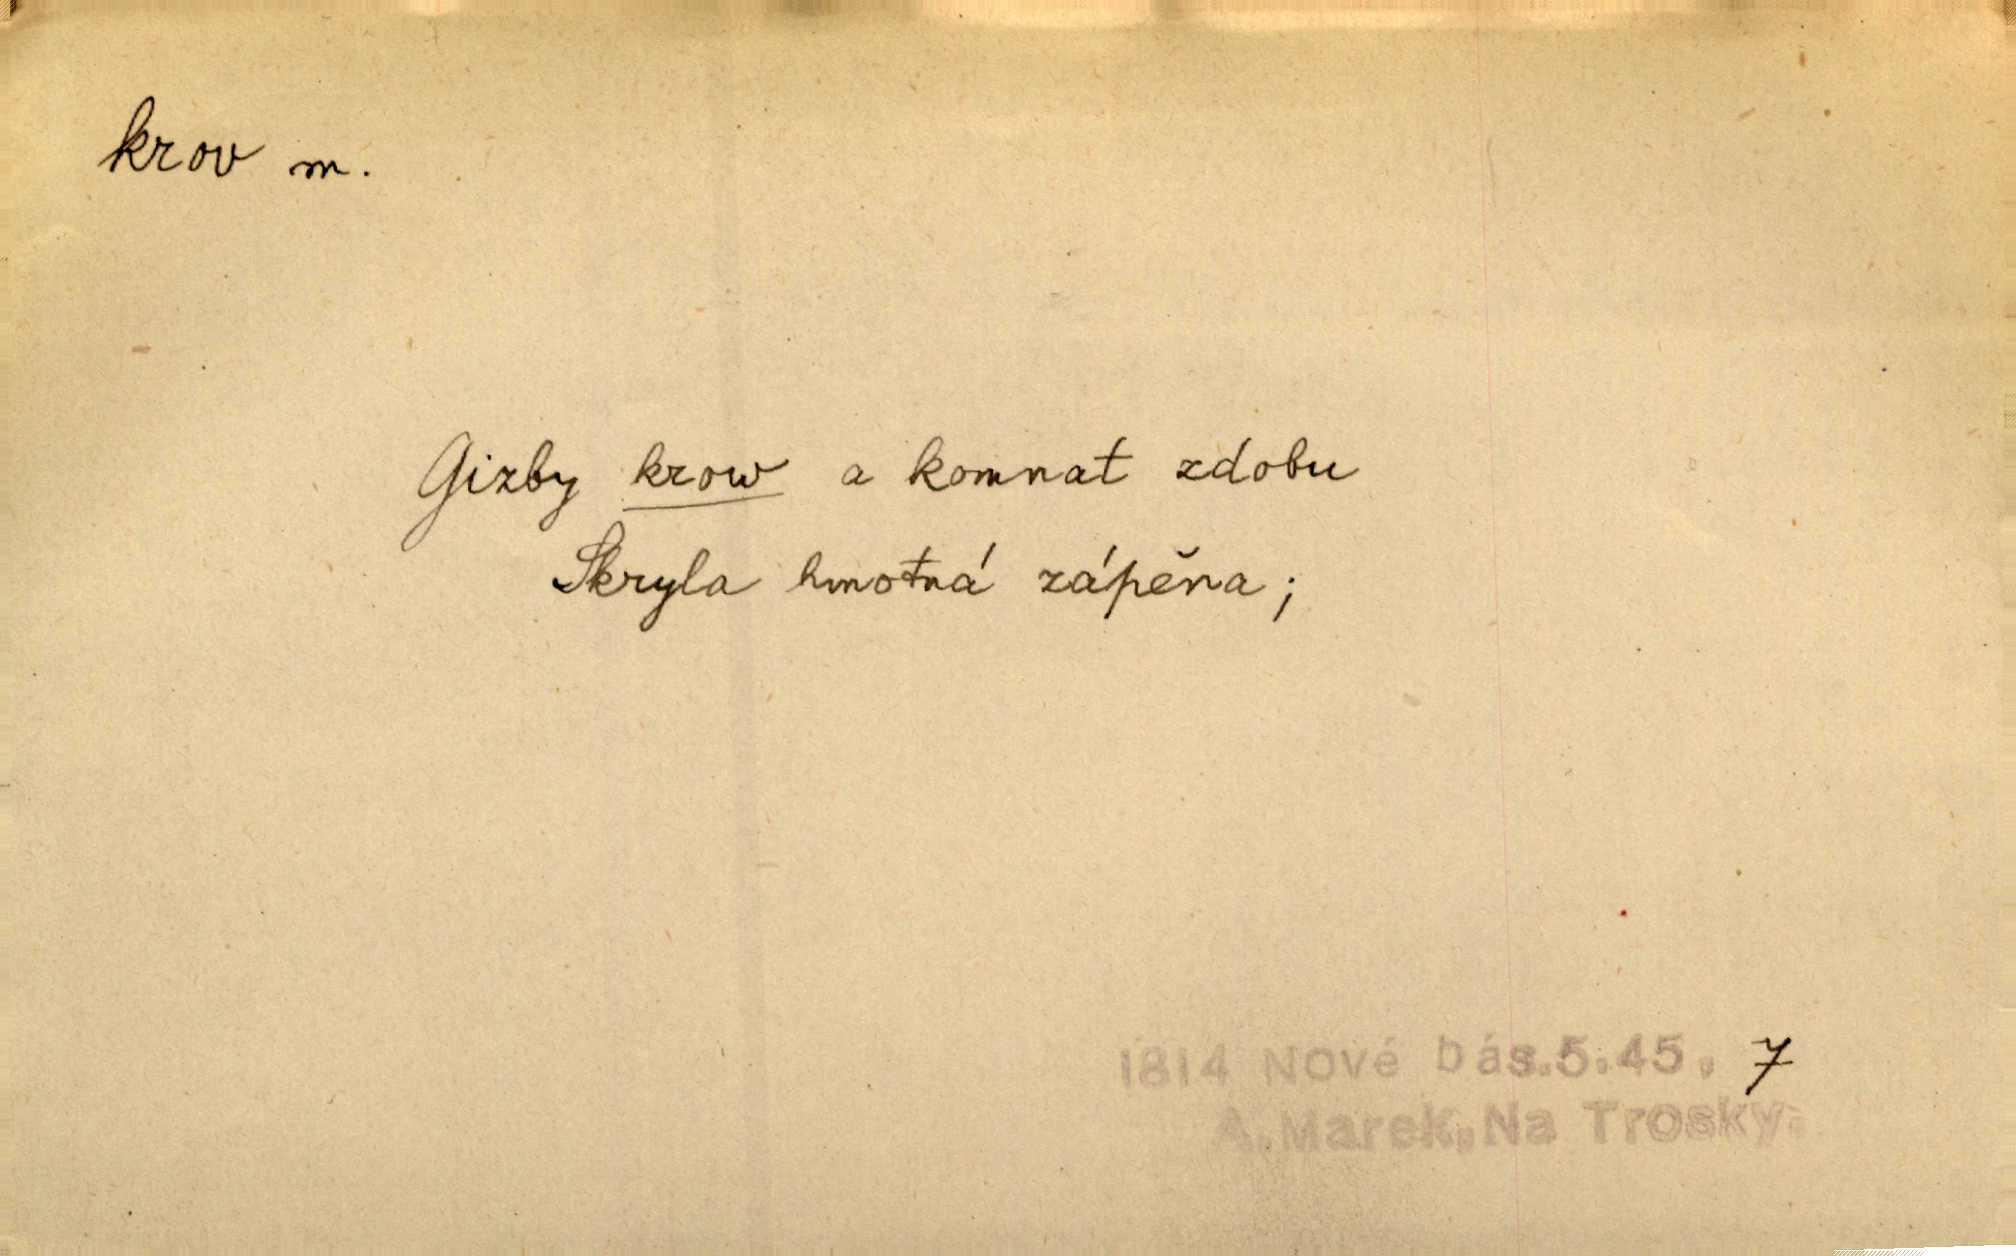 krov m.
Gizby krow a komnat zdobu
Skryla hmotná zápěna;
1814 Nové bás.5.45. 7
A.Marek,Na Trosky.